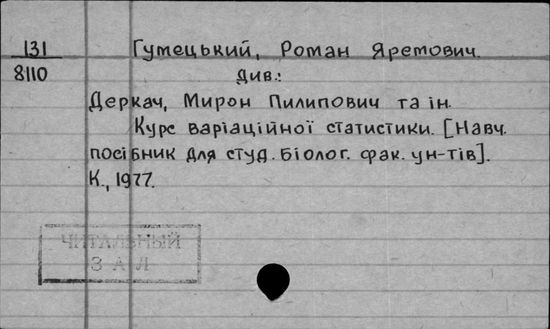 131
8110
Гумецький, Роман Яремович.
див.:
Деркач, Мирон Пилипович та ін.
Курс варіаційної статистики. [Навч.
посібник для студ. біолог. фак. ун-тів].
К., 1977.
ЧИТАЛЬНЫЙ
ЗАЛ